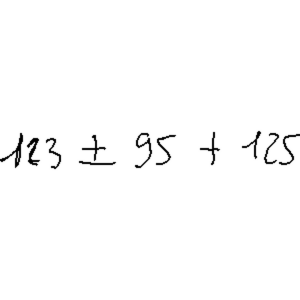 123 ± 95 + 125